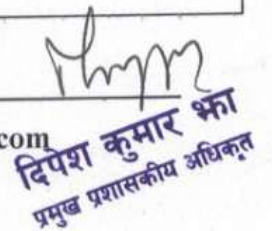 com
दिपेश कुमार झा
प्रमुख प्रशासकीय अधिकृत